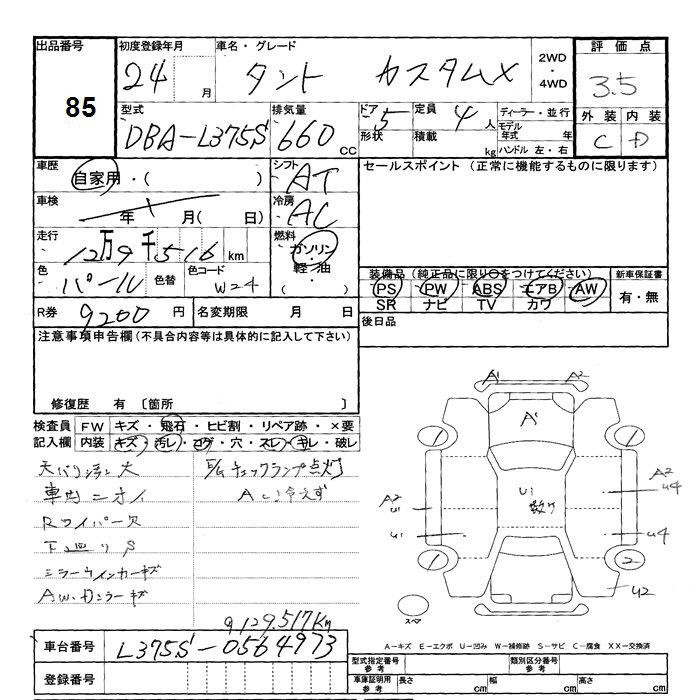 出品番号 初度登録年月 車名・グレード 2WD・4WD 評価点
85 24 月 タント カスタムX 3.5
型式 排気量 ドア 5 定員 4人 ディーラー・並行 外装 内装
DBA-L375S 660 CC 形状 積載 kg モデル年式 年 ハンドル 左・右 C D
車歴 自家用・( ) シフト AT セールスポイント (正常に機能するものに限ります)
車検 年 月( 日) 冷房 AC
走行 12万9千516 km 燃料 ガソリン・軽油・( )
色 パール 色替 色コード W24 装備品(純正品に限り○をつけてください) 新車保証書
PS PW ABS エアB AW 有・無
SR ナビ TV カワ
R券 9200 円 名変期限 月 日 後日品
注意事項申告欄(不具合内容等は具体的に記入して下さい)
修復歴 有 〔箇所 〕
検査員 FW キズ・飛石・ヒビ割・リペア跡・×要
記入欄 内装 キズ・汚レ・コゲ・穴・スレ・キレ・破レ
天バリシミ大 E/Gチェックランプ点灯
車内ニオイ A/C冷えず
Rワイパー欠
下廻りS
ミラーウインカーキズ
AW.Dミラーキズ
9 129.517Km
A1 A2
A1
1 1
U1 数ヶ
A2 U1 A2 U4
U1 U4
1 2
U2
スペア
車台番号 L375S-0564973
A-キズ E-エクボ U-凹み W-補修跡 S-サビ C-腐食 XX-交換済
登録番号 型式指定番号 参考 類別区分番号 参考
車庫証明用 参考 長さ cm 幅 cm 高さ cm